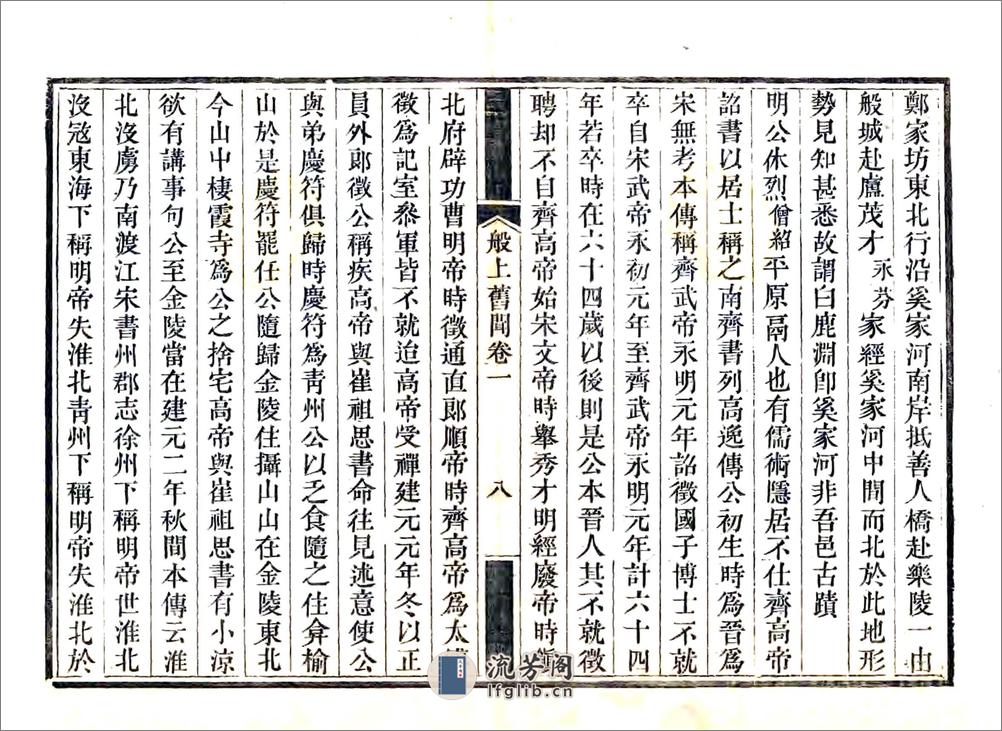 鄭家坊東北行沿奚家河南岸抵善人橋赴樂陵一由
般城赴盧茂才永芬家經奚家河中間而北於此地形
勢見知甚悉故謂白鹿淵卽奚家河非吾邑古蹟
明公休烈僧紹平原鬲人也有儒術隱居不仕齊高帝
詔書以居士稱之南齊書列高逸傳公初生時爲晉爲
宋無考本傳稱齊武帝永明元年詔徵國子博士不就
卒自宋武帝永初元年至齊武帝永明元年計六十四
年若卒時在六十四歲以後則是公本晉人其不就徵
聘却不自齊高帝始宋文帝時舉秀才明經廢帝時
般上舊聞卷一
八
北府辟功曹明帝時徵通直郞順帝時齊高帝爲太
徵爲記室參軍皆不就迨高帝受禪建元元年冬以正
員外郞徵公稱疾高帝與崔祖思書命往見述意使公
與弟慶符俱歸時慶符爲青州公以乏食隨之住弇榆
山於是慶符罷任公隨歸金陵住攝山山在金陵東北
今山中棲霞寺爲公之捨宅高帝與崔祖思書有小涼
欲有講事句公至金陵當在建元二年秋間本傳云淮
北沒虜乃南渡江宋書州郡志徐州下稱明帝世淮北
沒寇東海下稱明帝失淮北青州下稱明帝失淮北於
流芳閣
lfglib.cn